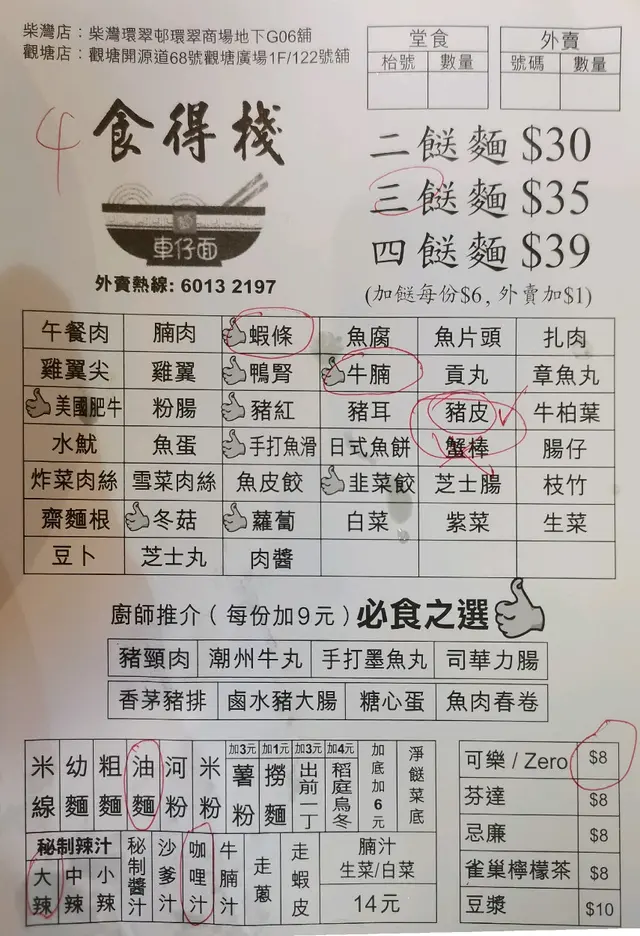 柴灣店：柴灣環翠邨環翠商場地下G06舖
觀塘店：觀塘開源道68號觀塘廣場1F/122號舖
堂食 外賣
枱號 數量 號碼 數量
4
食得棧
車仔面
外賣熱線: 6013 2197
二餸麵 $30
三餸麵 $35
四餸麵 $39
(加餸每份$6, 外賣加$1)
午餐肉 腩肉 蝦條 魚腐 魚片頭 扎肉
雞翼尖 雞翼 鴨腎 牛腩 貢丸 章魚丸
美國肥牛 粉腸 豬紅 豬耳 豬皮 牛柏葉
水魷 魚蛋 手打魚滑 日式魚餅 蟹棒 腸仔
炸菜肉絲 雪菜肉絲 魚皮餃 韭菜餃 芝士腸 枝竹
齋麵根 冬菇 蘿蔔 白菜 紫菜 生菜
豆卜 芝士丸 肉醬
廚師推介（每份加9元）必食之選
豬頸肉 潮州牛丸 手打墨魚丸 司華力腸
香茅豬排 鹵水豬大腸 糖心蛋 魚肉春卷
米線 幼麵 粗麵 油麵 河粉 米粉 加3元薯粉 加1元撈麵 加3元出前一丁 加4元稻庭烏冬 加底加6元 淨餸菜底
秘制辣汁 大辣 中辣 小辣 秘制醬汁 沙爹汁 咖哩汁 牛腩汁 走蔥 走蝦皮 腩汁生菜/白菜 14元
可樂 / Zero $8
芬達 $8
忌廉 $8
雀巢檸檬茶 $8
豆漿 $10